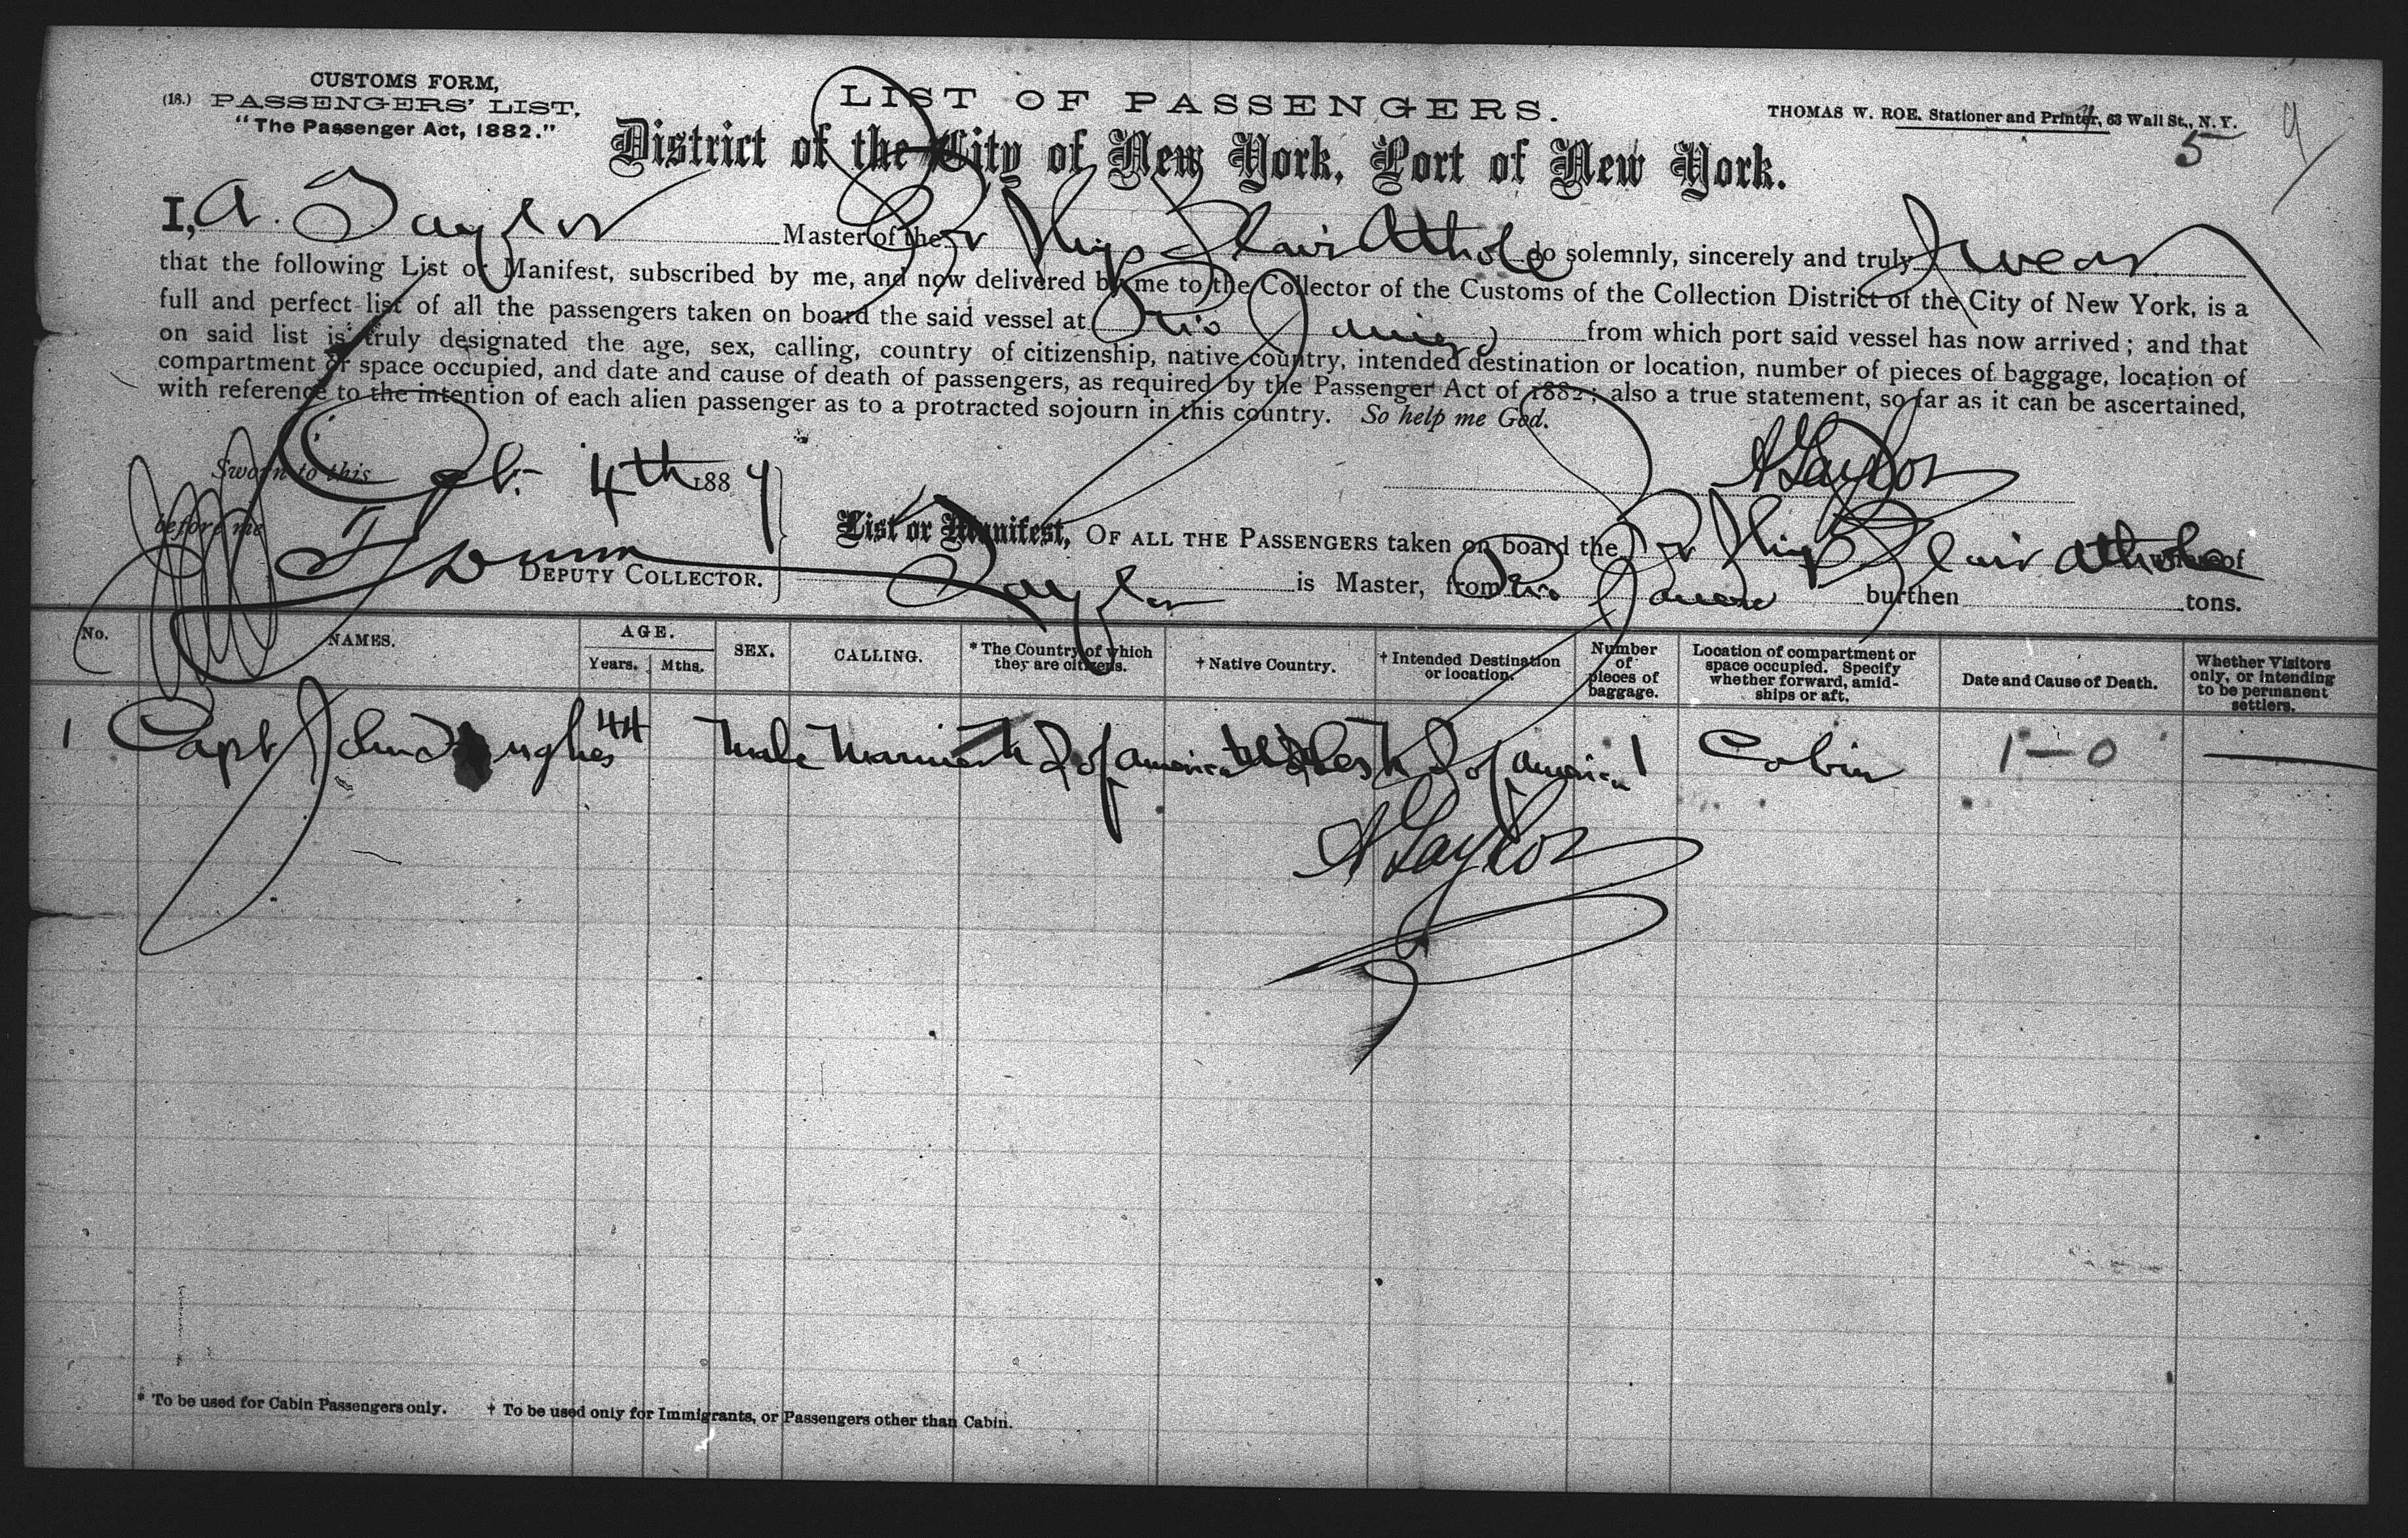 CUSTOMS FORM,
(18.) PASSENGERS' LIST.
"The Passenger Act, 1882."
LIST OF PASSENGERS.
THOMAS W. ROE, Stationer and Printer, 63 Wall St., N. Y.
5
District of the City of New York, Port of New York.
I, A. Taylor Master of the Br Ship Blair Athole do solemnly, sincerely and truly Swear
that the following List or Manifest, subscribed by me, and now delivered by me to the Collector of the Customs of the Collection District of the City of New York, is a
full and perfect list of all the passengers taken on board the said vessel at Rio Janeiro from which port said vessel has now arrived; and that
on said list is truly designated the age, sex, calling, country of citizenship, native country, intended destination or location, number of pieces of baggage, location of
compartment or space occupied, and date and cause of death of passengers, as required by the Passenger Act of 1882; also a true statement, so far as it can be ascertained,
with reference to the intention of each alien passenger as to a protracted sojourn in this country. So help me God.
A Taylor
Sworn to this 4th 188
before me
DEPUTY COLLECTOR.
List or Manifest, OF ALL THE PASSENGERS taken on board the Br Ship Blair Athole whereof
Taylor is Master, from Rio Janeiro burthen tons.
No. NAMES. AGE. Years. Mths. SEX. CALLING. * The Country of which they are citizens. † Native Country. † Intended Destination or location. Number of pieces of baggage. Location of compartment or space occupied. Specify whether forward, amidships or aft. Date and Cause of Death. Whether Visitors only, or intending to be permanent settlers.
1 Capt John Hughes 44 Male Marine of America of America 1 Cabin 1-0
A Taylor
* To be used for Cabin Passengers only. † To be used only for Immigrants, or Passengers other than Cabin.